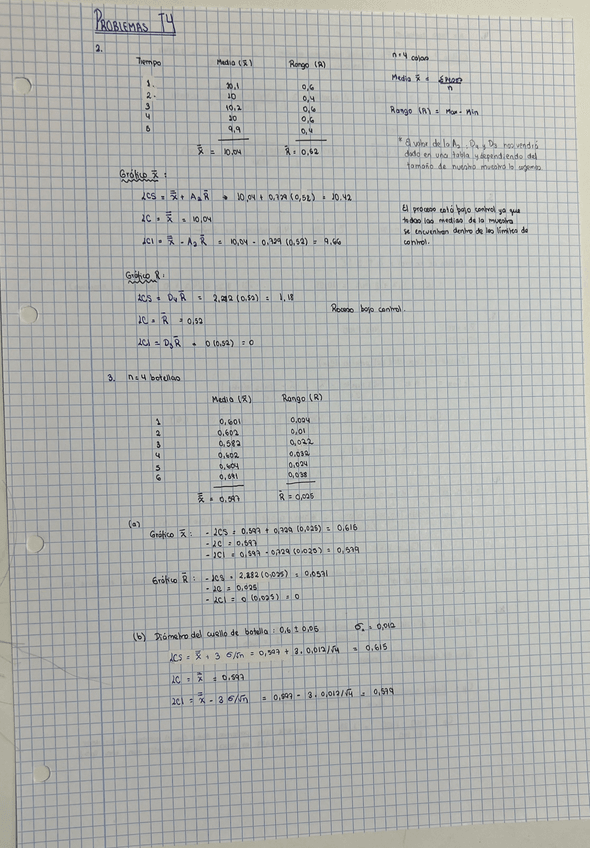 PROBLEMAS T4
2.
Tiempo Media (x̄) Rango (R)
1 10,1 0,6
2 10 0,4
3 10,2 0,6
4 10 0,6
5 9,9 0,4
x̿ = 10,04 R̄ = 0,52
n = 4 cajas
Media x̄ = 
n
Rango (R) = Max - Min
* El valor de la A₂, D₄ y D₃ nos vendrá
dado en una tabla y dependiendo del
tamaño de nuestra muestra lo cogemos
Gráfico x̄ :
LCS = x̿ + A₂ R̄ → 10,04 + 0,729 (0,52) = 10,42
LC = x̿ = 10,04
LCI = x̿ - A₂ R̄ = 10,04 - 0,729 (0,52) = 9,66
El proceso está bajo control ya que
todas las medias de la muestra
se encuentran dentro de los límites de
control.
Gráfico R :
LCS = D₄ R̄ = 2,282 (0,52) = 1,18
LC = R̄ = 0,52
LCI = D₃ R̄ = 0 (0,52) = 0
Proceso bajo control.
3. n = 4 botellas
Media (x̄) Rango (R)
1 0,601 0,024
2 0,602 0,01
3 0,582 0,022
4 0,602 0,032
5 0,604 0,024
6 0,591 0,038
x̿ = 0,597 R̄ = 0,025
(a)
Gráfico x̄ : - LCS = 0,597 + 0,729 (0,025) = 0,615
- LC = 0,597
- LCI = 0,597 - 0,729 (0,025) = 0,579
Gráfico R̄ : - LCS = 2,282 (0,025) = 0,0571
- LC = 0,025
- LCI = 0 (0,025) = 0
(b) Diámetro del cuello de botella : 0,6 ± 0,05 σ = 0,012
LCS = x̿ + 3 σ/√n = 0,597 + 3 · 0,012/√4 = 0,615
LC = x̿ = 0,597
LCI = x̿ - 3 σ/√n = 0,597 - 3 · 0,012/√4 = 0,579